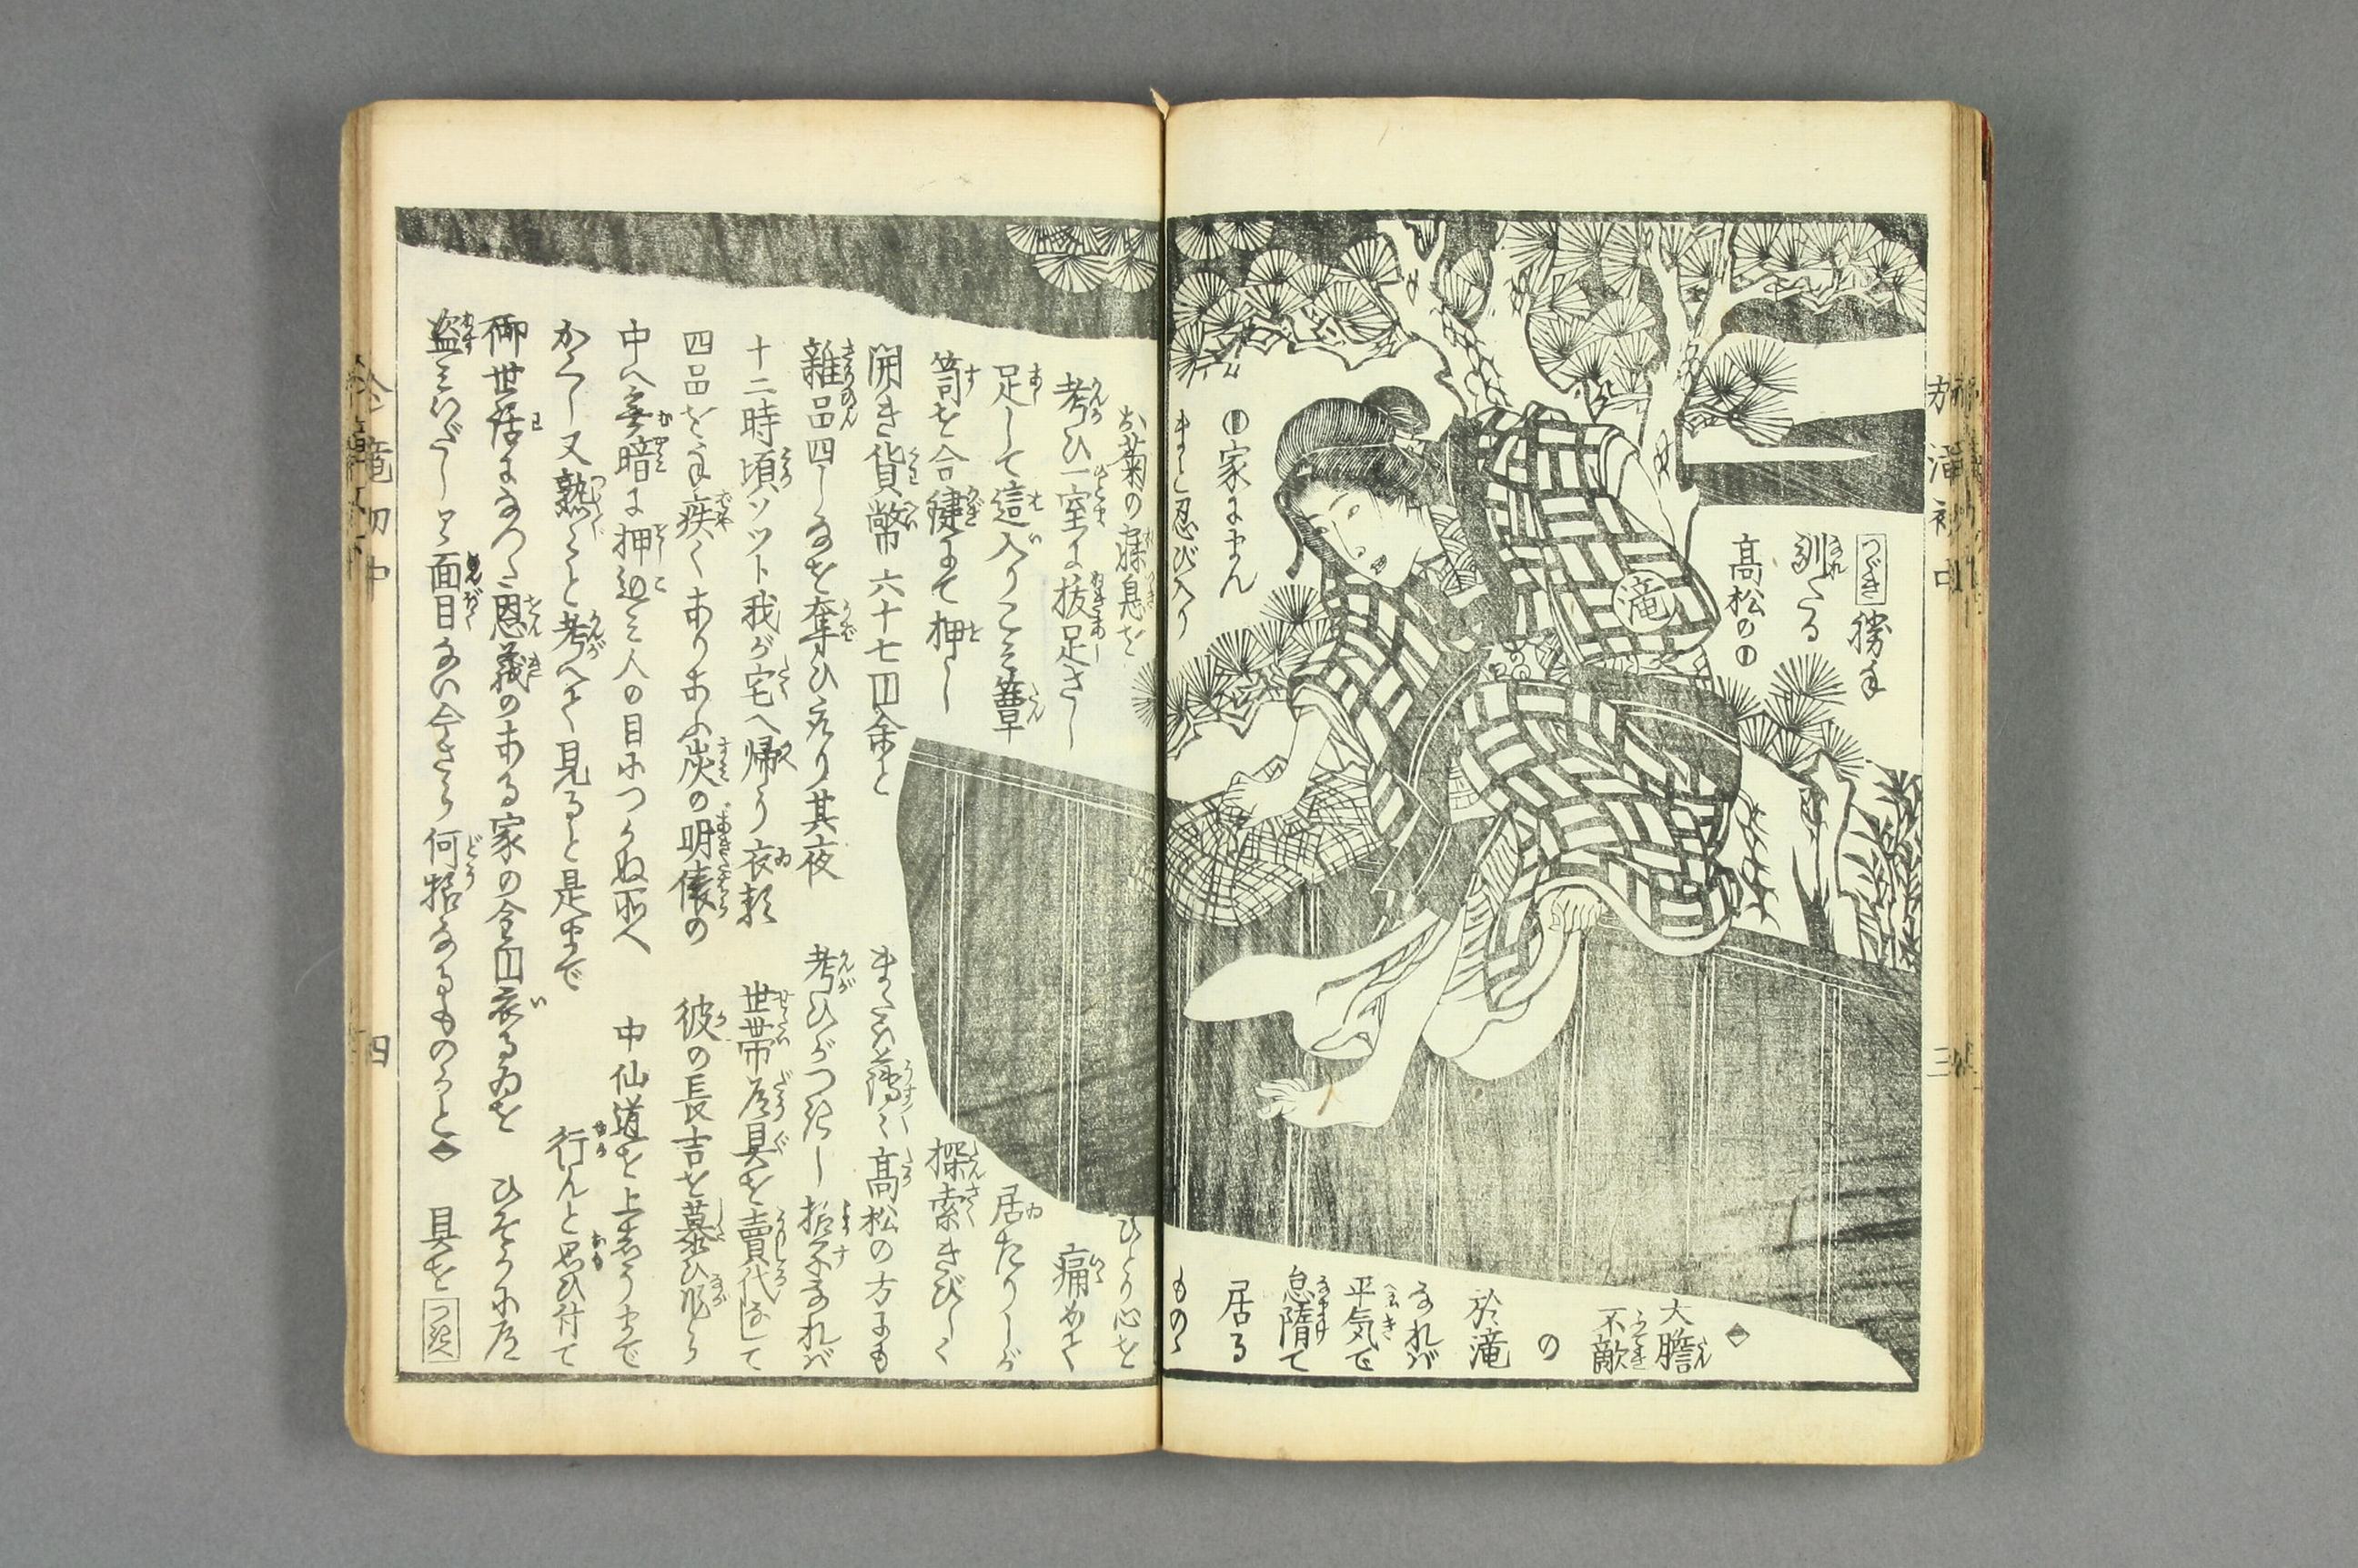 つゞき
勝手
馴たる
高松の
家にまん
まと忍び入り
お菊の寐息を
考ひ一室に抜足さし
足して這入りこみ簟
笥を合鍵にて押し
開き貨幣六十七円余と
雑品四しなを奪ひ
其夜
十二時頃ソツト我が宅へ帰り衣類
四品を手疾く
炭の明俵の
中へ無暗に押込み人の目につかぬ所へ
かくし又熟々と考へて見ると是まで
御世話になつた恩義のある家の金円衣るゐを
盗みいだし
面目ない今さら何
なるものかと
大膽
不敵
の
於滝
なれバ
平気で
怠惰て
居る
ものゝ
ひとり心を
痛めて
居たりしが
探索きびしく
高松の方にも
考ひがつきし
なれバ
世帯道具を賣代なして
彼の長吉を慕ひ
中仙道を上
まで
行んと思ひ付て
ひそかに道
具を
つゞく
滝
四
三